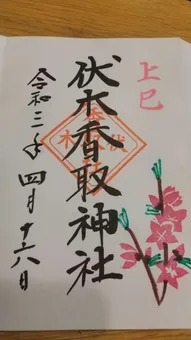 上巳
伏木香取神社
令和三年四月十六日